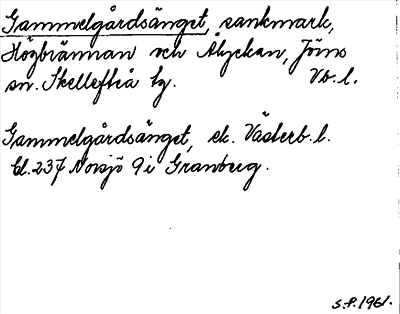 Gammelgårdsänget, sankmark,
Högbrännan och Älyckan, Jörns
sn. Skellefteå tg. Vb. l.
Gammelgårdsänget, ek. Västerb. l.
bl. 237 Norsjö 9 i Granberg.
S.P. 1961.